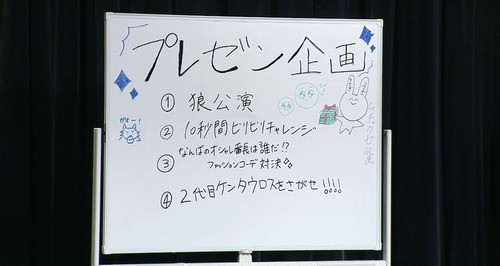 プレゼン企画
① 狼公演
② 10秒間ビリビリチャレンジ
③ なんばのオシャレ番長は誰だ!?
ファッションコーデ対決
④ 2代目ケンタウロスをさがせ!!!!